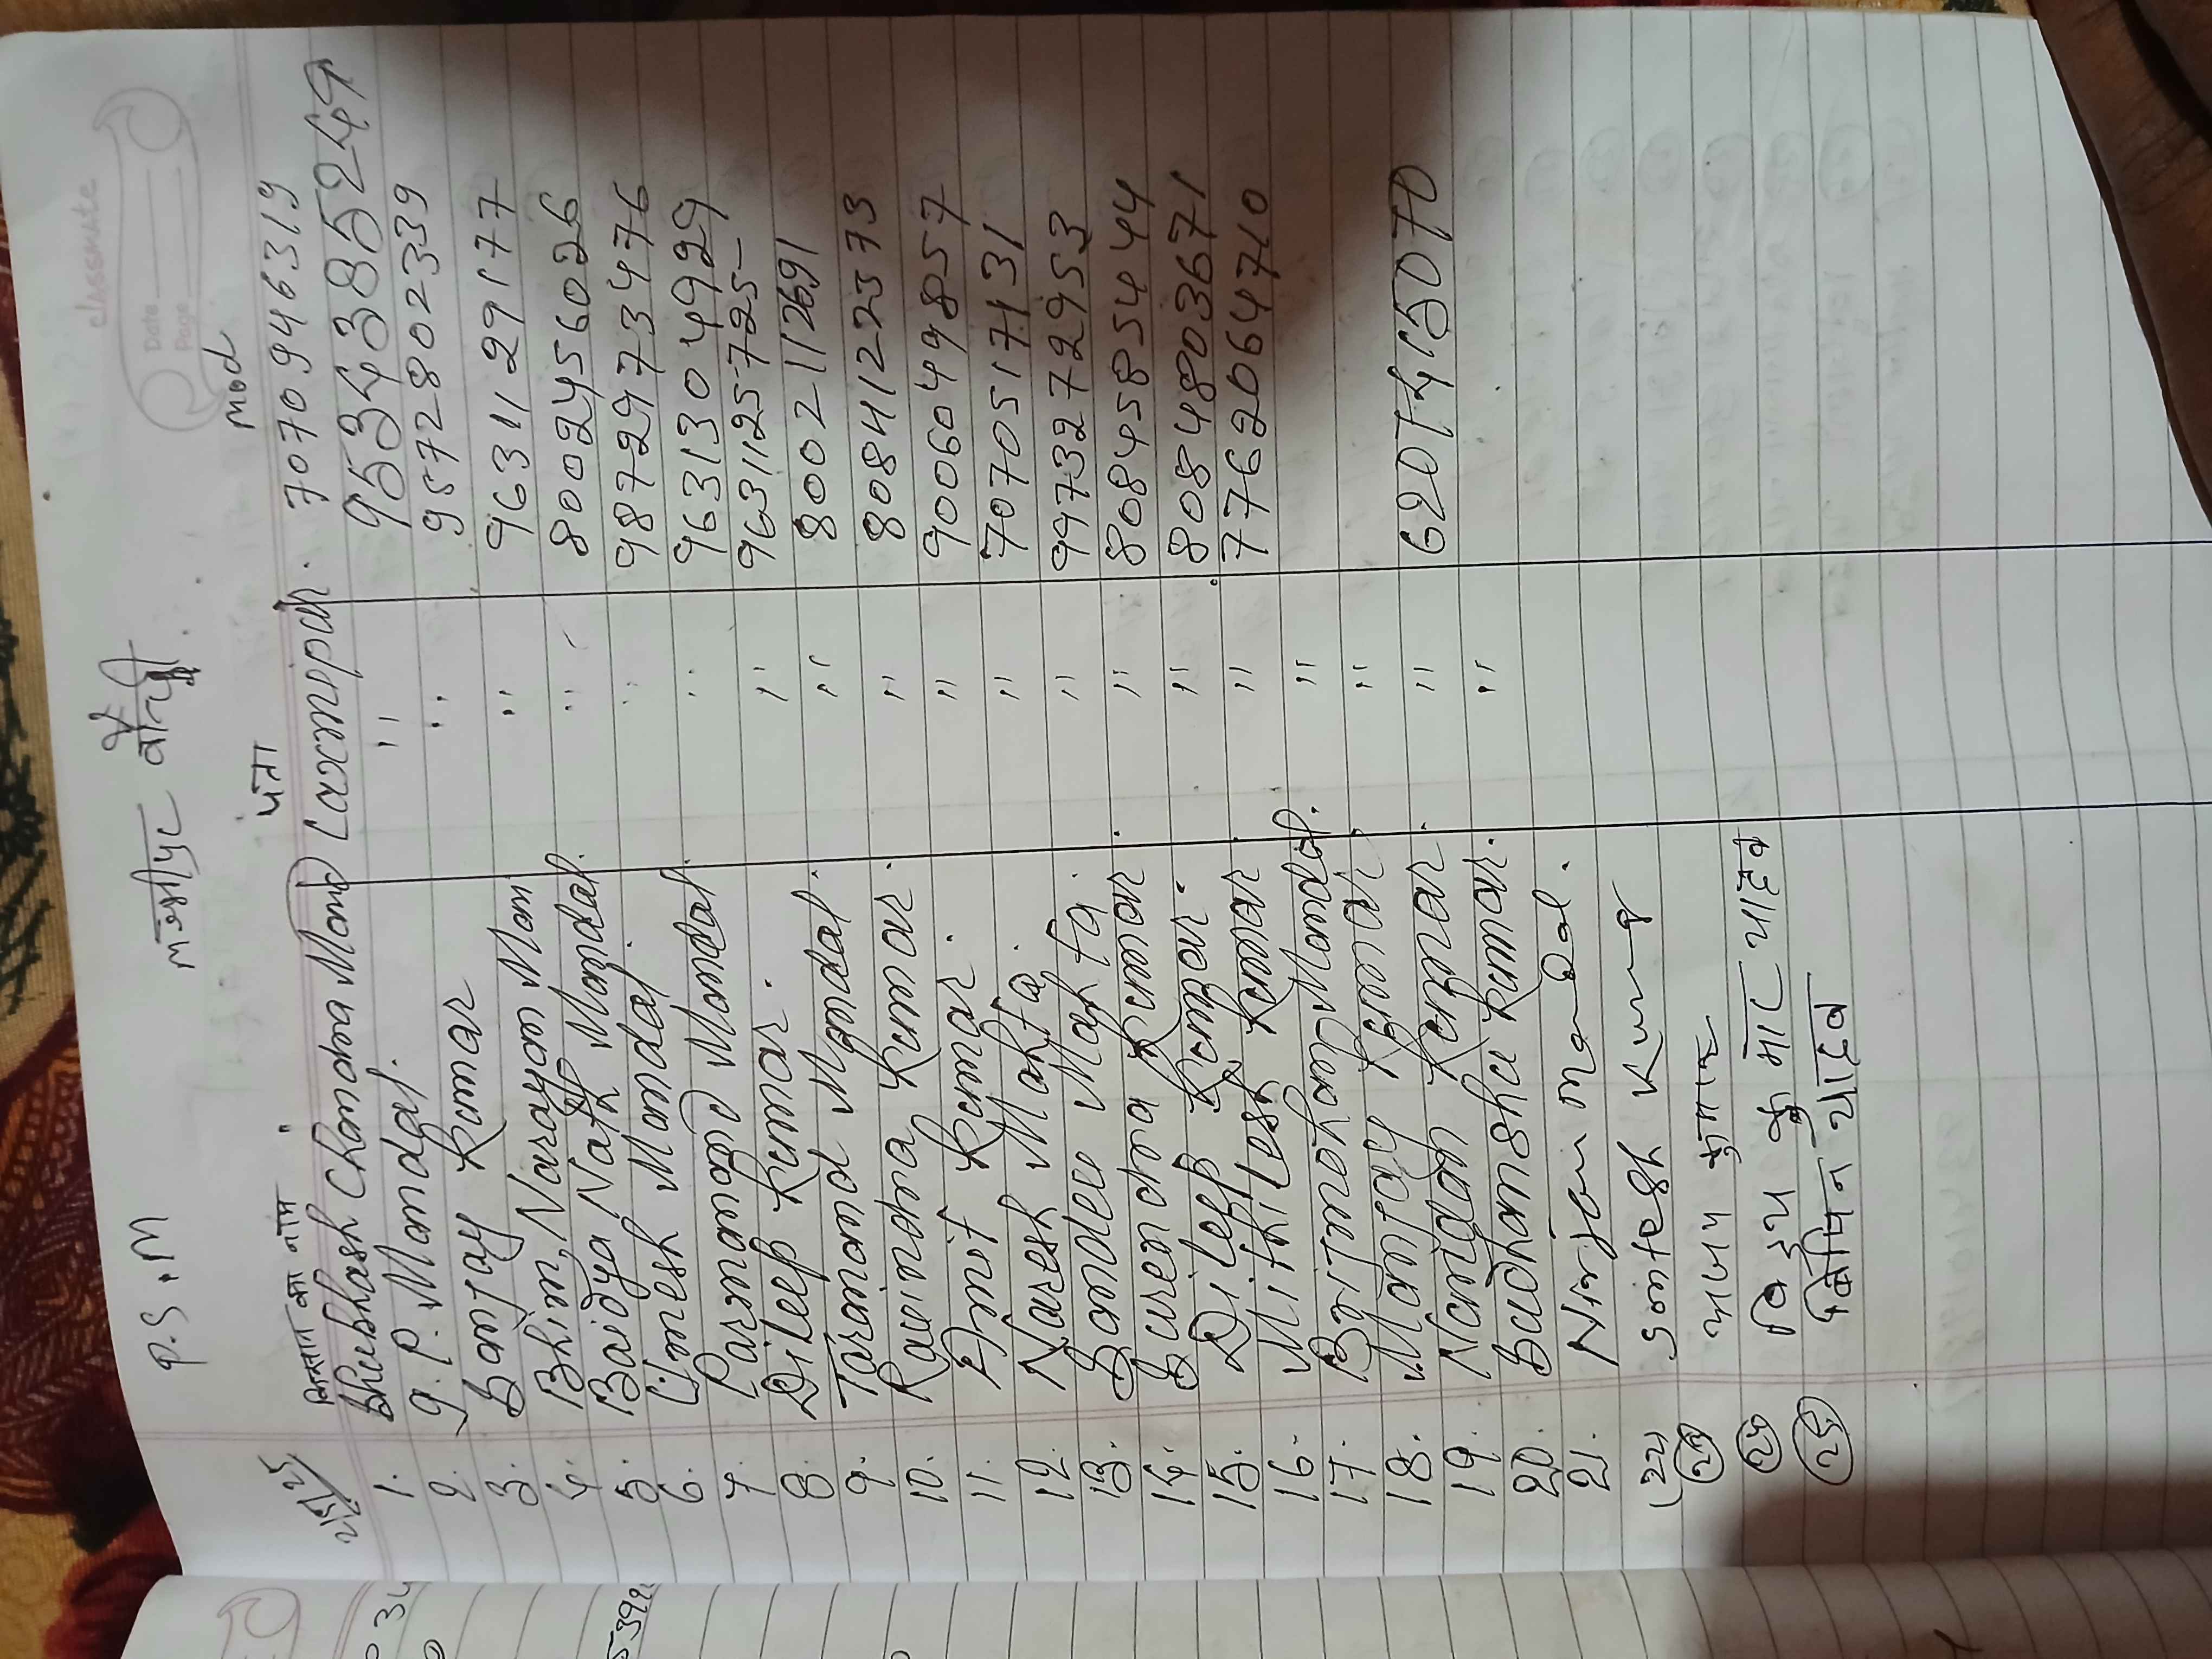 classmate
Date
Page
P.S.M
किसान का नाम पता Mod
1. Bhubhash Chandra Mand Laxmipur. 7070946319
2. g. P. Mandal. " 9534385249
3. Sanjay Kumar " 9572802339
4. Bhim Narayan Man " 9631129177
5. Baidya Nath Mandal. " 8002456026
6. Umesh Mandal " 9872973476
7. Mandal. " 9631304929
8. Dileep Kumar. " 9631125725
9. Mandal. " 8002112691
10. Kumar. " 8084122573
11. Kumar. " 9006049857
12. Naresh Mahta. " 7070517131
13. Mahta. " 9973272953
14. Kumar " 8084585444
15. Dileep Kumar. " 8084803671
16. Mithilesh Kumar " 7762064710
17. Mandal. "
18. Kumar "
19. Kumar " 620745070
20. Sudhanshu Kumar. "
21. Niranjan mandal.
(22) Santosh Kumar
(23) अजय कुमार
(24) विजय कुमार यादव
(25) विपिन यादव